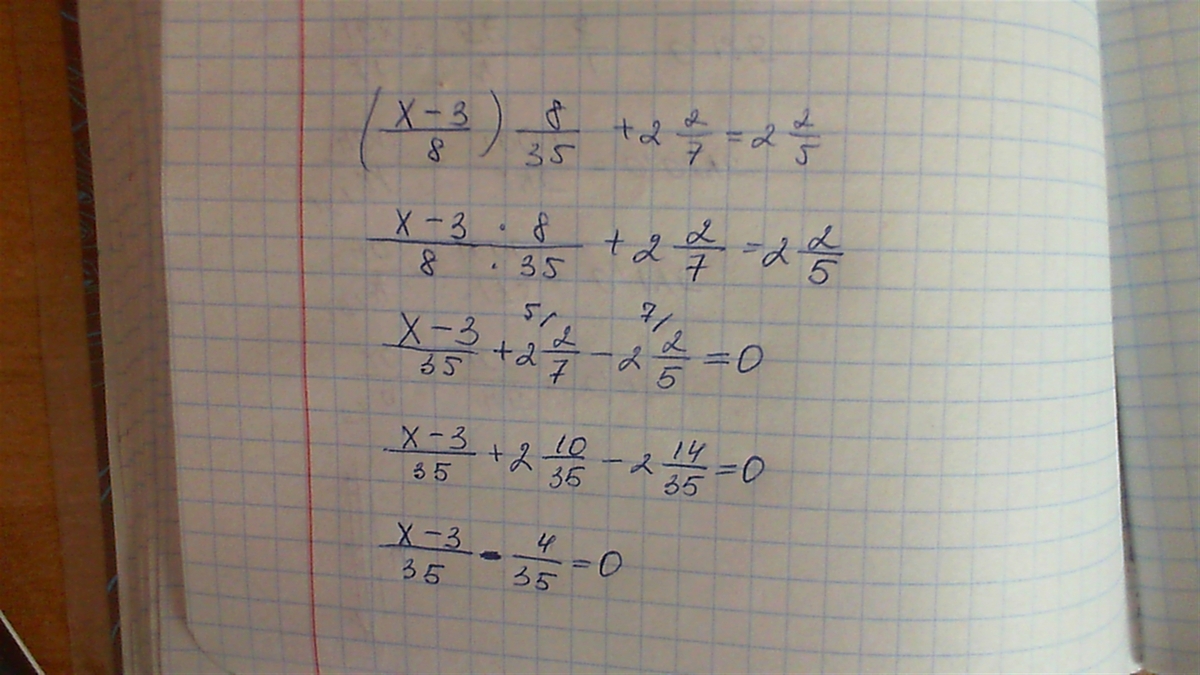 (x-3/8) 8/35 + 2 2/7 = 2 2/5
x-3 · 8/8 · 35 + 2 2/7 = 2 2/5
x-3/35 + 2 5/ 2/7 - 2 7/ 2/5 = 0
x-3/35 + 2 10/35 - 2 14/35 = 0
x-3/35 - 4/35 = 0